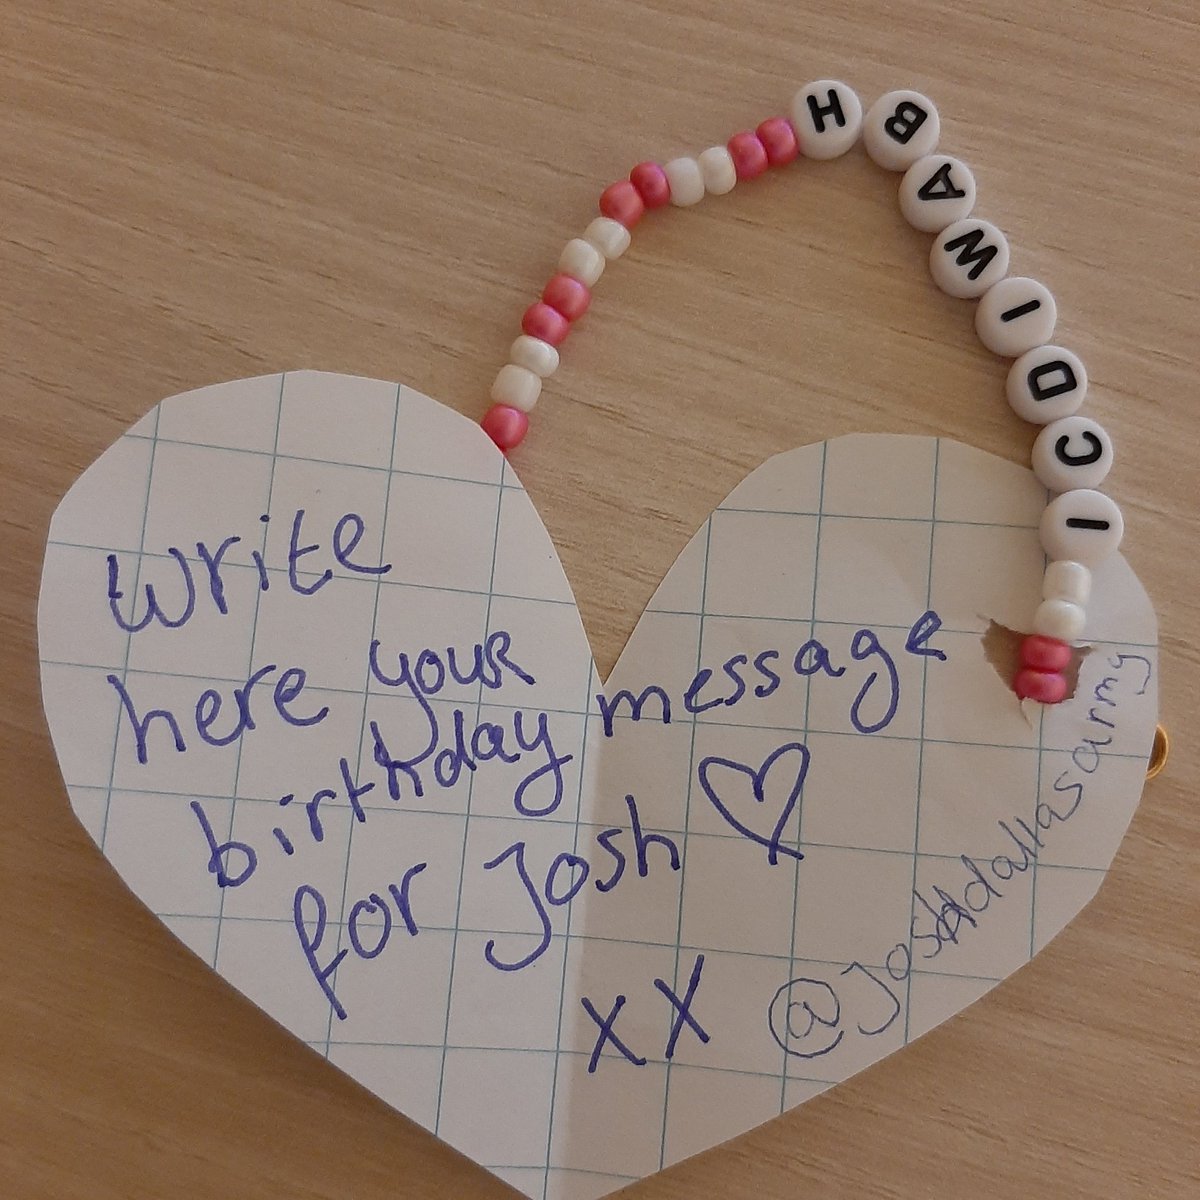 ICDIWABH
write
here your
birthday message
for Josh
xx
@Joshdallasarmy